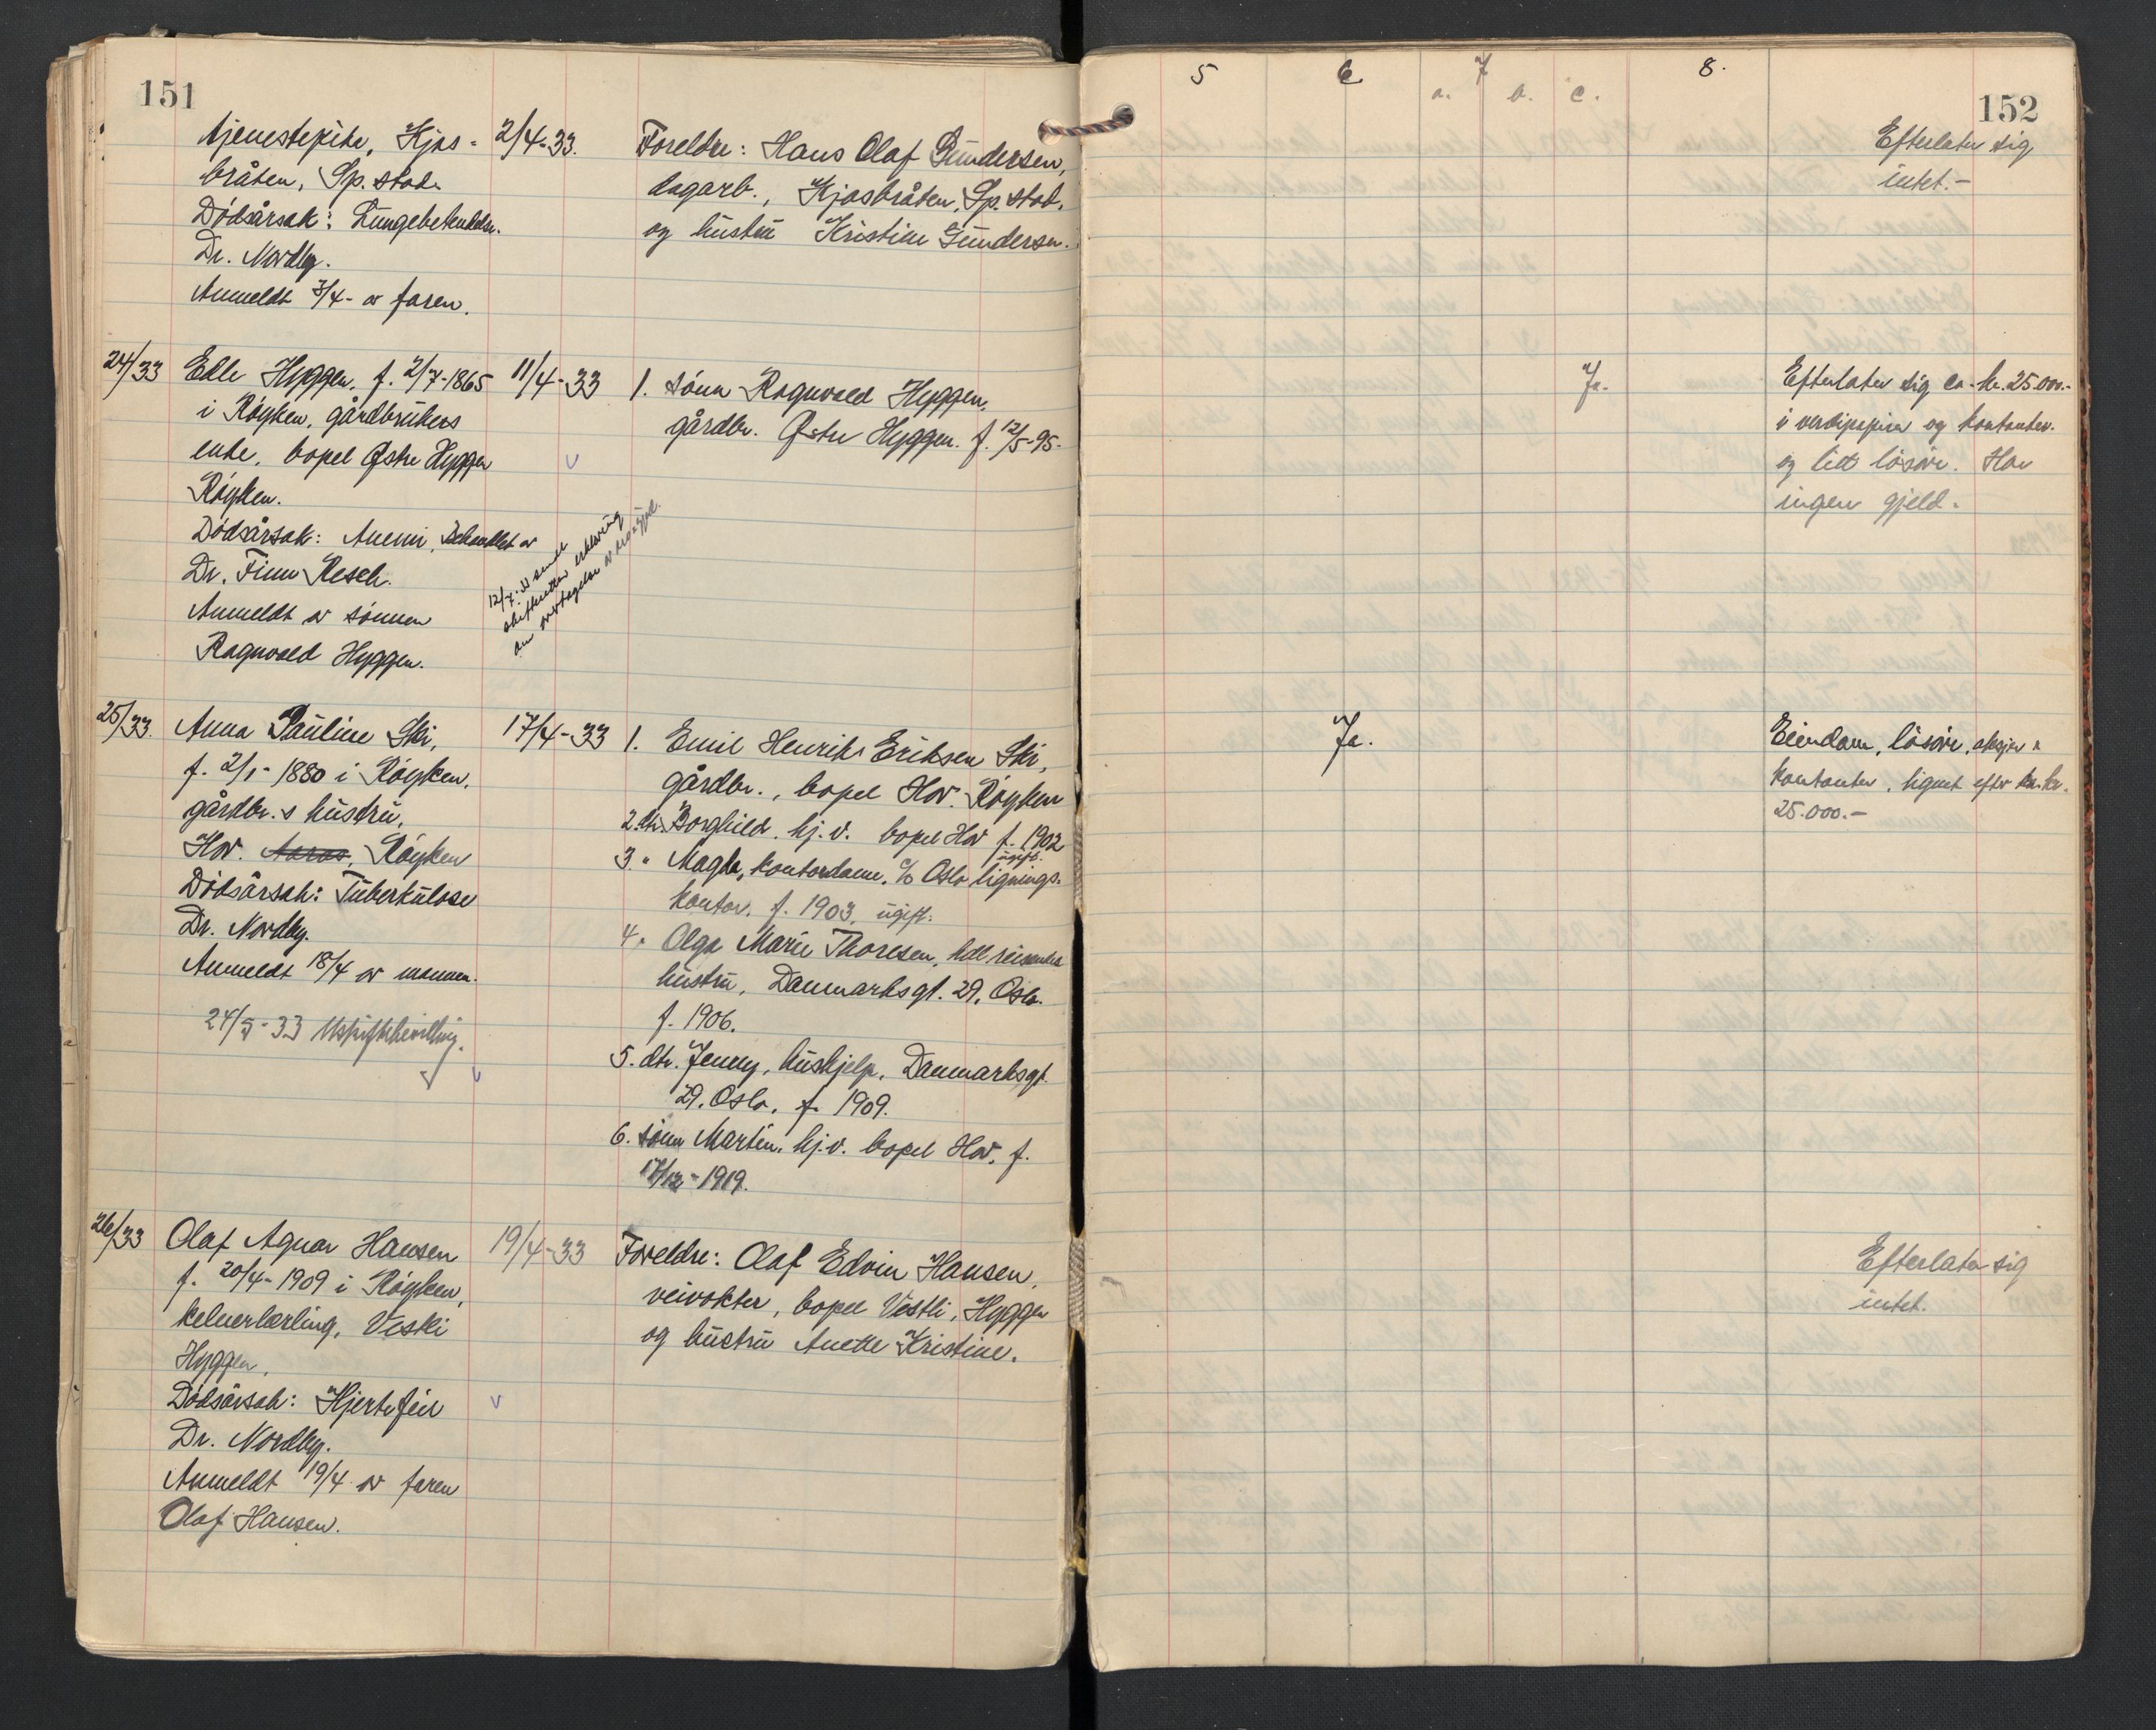 151
tjenestepike, Kjos-
bråten, Sp.stad.
Dödsårsak: Lungebetendelse.
Dr. Nordby.
Anmeldt 3/4- av faren.
2/4-33.
Foreldre: Hans Olaf Gundersen,
dagarb., Kjosbråten, Sp.stad.
og hustru Kristine Gundersen.
24/33
Edle Hyggen, f. 2/7-1865
i Röyken, gårdbrukers
enke, bopel Østre Hyggen
Röyken.
Dödsårsak: Anemi, Behandlet av
Dr. Finn Resch.
Anmeldt av sönnen
Ragnvald Hyggen.
11/4-33
12/4-33 sendt
skifteretten erklæring
om overtagelse av arv & gjeld.
1. sönn Ragnvald Hyggen,
gårdbr. Østre Hyggen. f. 12/5-95.
25/33.
Anna Pauline Ski,
f. 2/1-1880 i Röyken,
gårdbr.s hustru,
Hov. Aaros, Röyken
Dödsårsak: Tuberkulose
Dr. Nordby.
Anmeldt 18/4 av mannen.
24/5-33 Uskiftebevilling.
17/4-33
1. Emil Henrik Eriksen Ski,
gårdbr., bopel Hov. Röyken
2. dtr. Borghild, hj.v. bopel Hov f. 1902
ugift.
3 " Magda, kontordame, c/o Oslo lignings-
kontor. f. 1903, ugift.
4 " Olga Marie Thoresen, hdl.reisendes
hustru, Danmarksgt. 29, Oslo.
f. 1906.
5. dtr. Jenny, hushjelp, Danmarksgt.
29. Oslo, f. 1909.
6. sönn Martin, hj.v. bopel Hov, f.
17/12-1919.
26/33
Olaf Agnar Hansen
f. 20/4-1909 i Röyken,
kelnerlærling, Vestli
Hyggen,
Dödsårsak: Hjertefeil
Dr. Nordby.
Anmeldt 19/4 av faren
Olaf Hansen.
19/4-33
Foreldre: Olaf Edvin Hansen,
veivokter, bopel Vestli, Hyggen
og hustru Anette Kristine.
5 6 7 8.
a. b. c.
152
Efterlater sig
intet.-
Ja.
Efterlater sig ca. kr. 25.000.-
i verdipapirer og kontanter.
og litt lösöre. Har
ingen gjeld.
Ja.
Eiendom, lösöre, aksjer &
kontanter, lignet efter ca. kr.
25.000.-
Efterlater sig
intet.